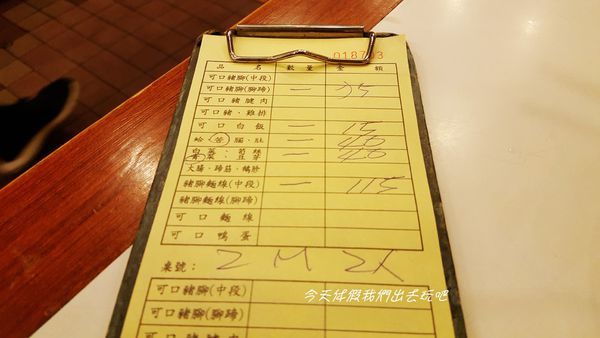 018703
品名 數量 金額
可口豬腳(中段)
可口豬腳(腳蹄) 一 95
可口豬腱肉
可口豬、雞排
可口白飯 一 15
蛤(苦)腦、肚 一 40
白菜：筍絲
青菜：豆芽 一 40
大腸、蹄筋、鴨胗
豬腳麵線(中段) 一 115
豬腳麵線(腳蹄)
可口麵線
可口鴨蛋
桌號： 2 M 2人
可口豬腳(中段)
可口豬腳(腳蹄)
今天休假我們出去玩吧